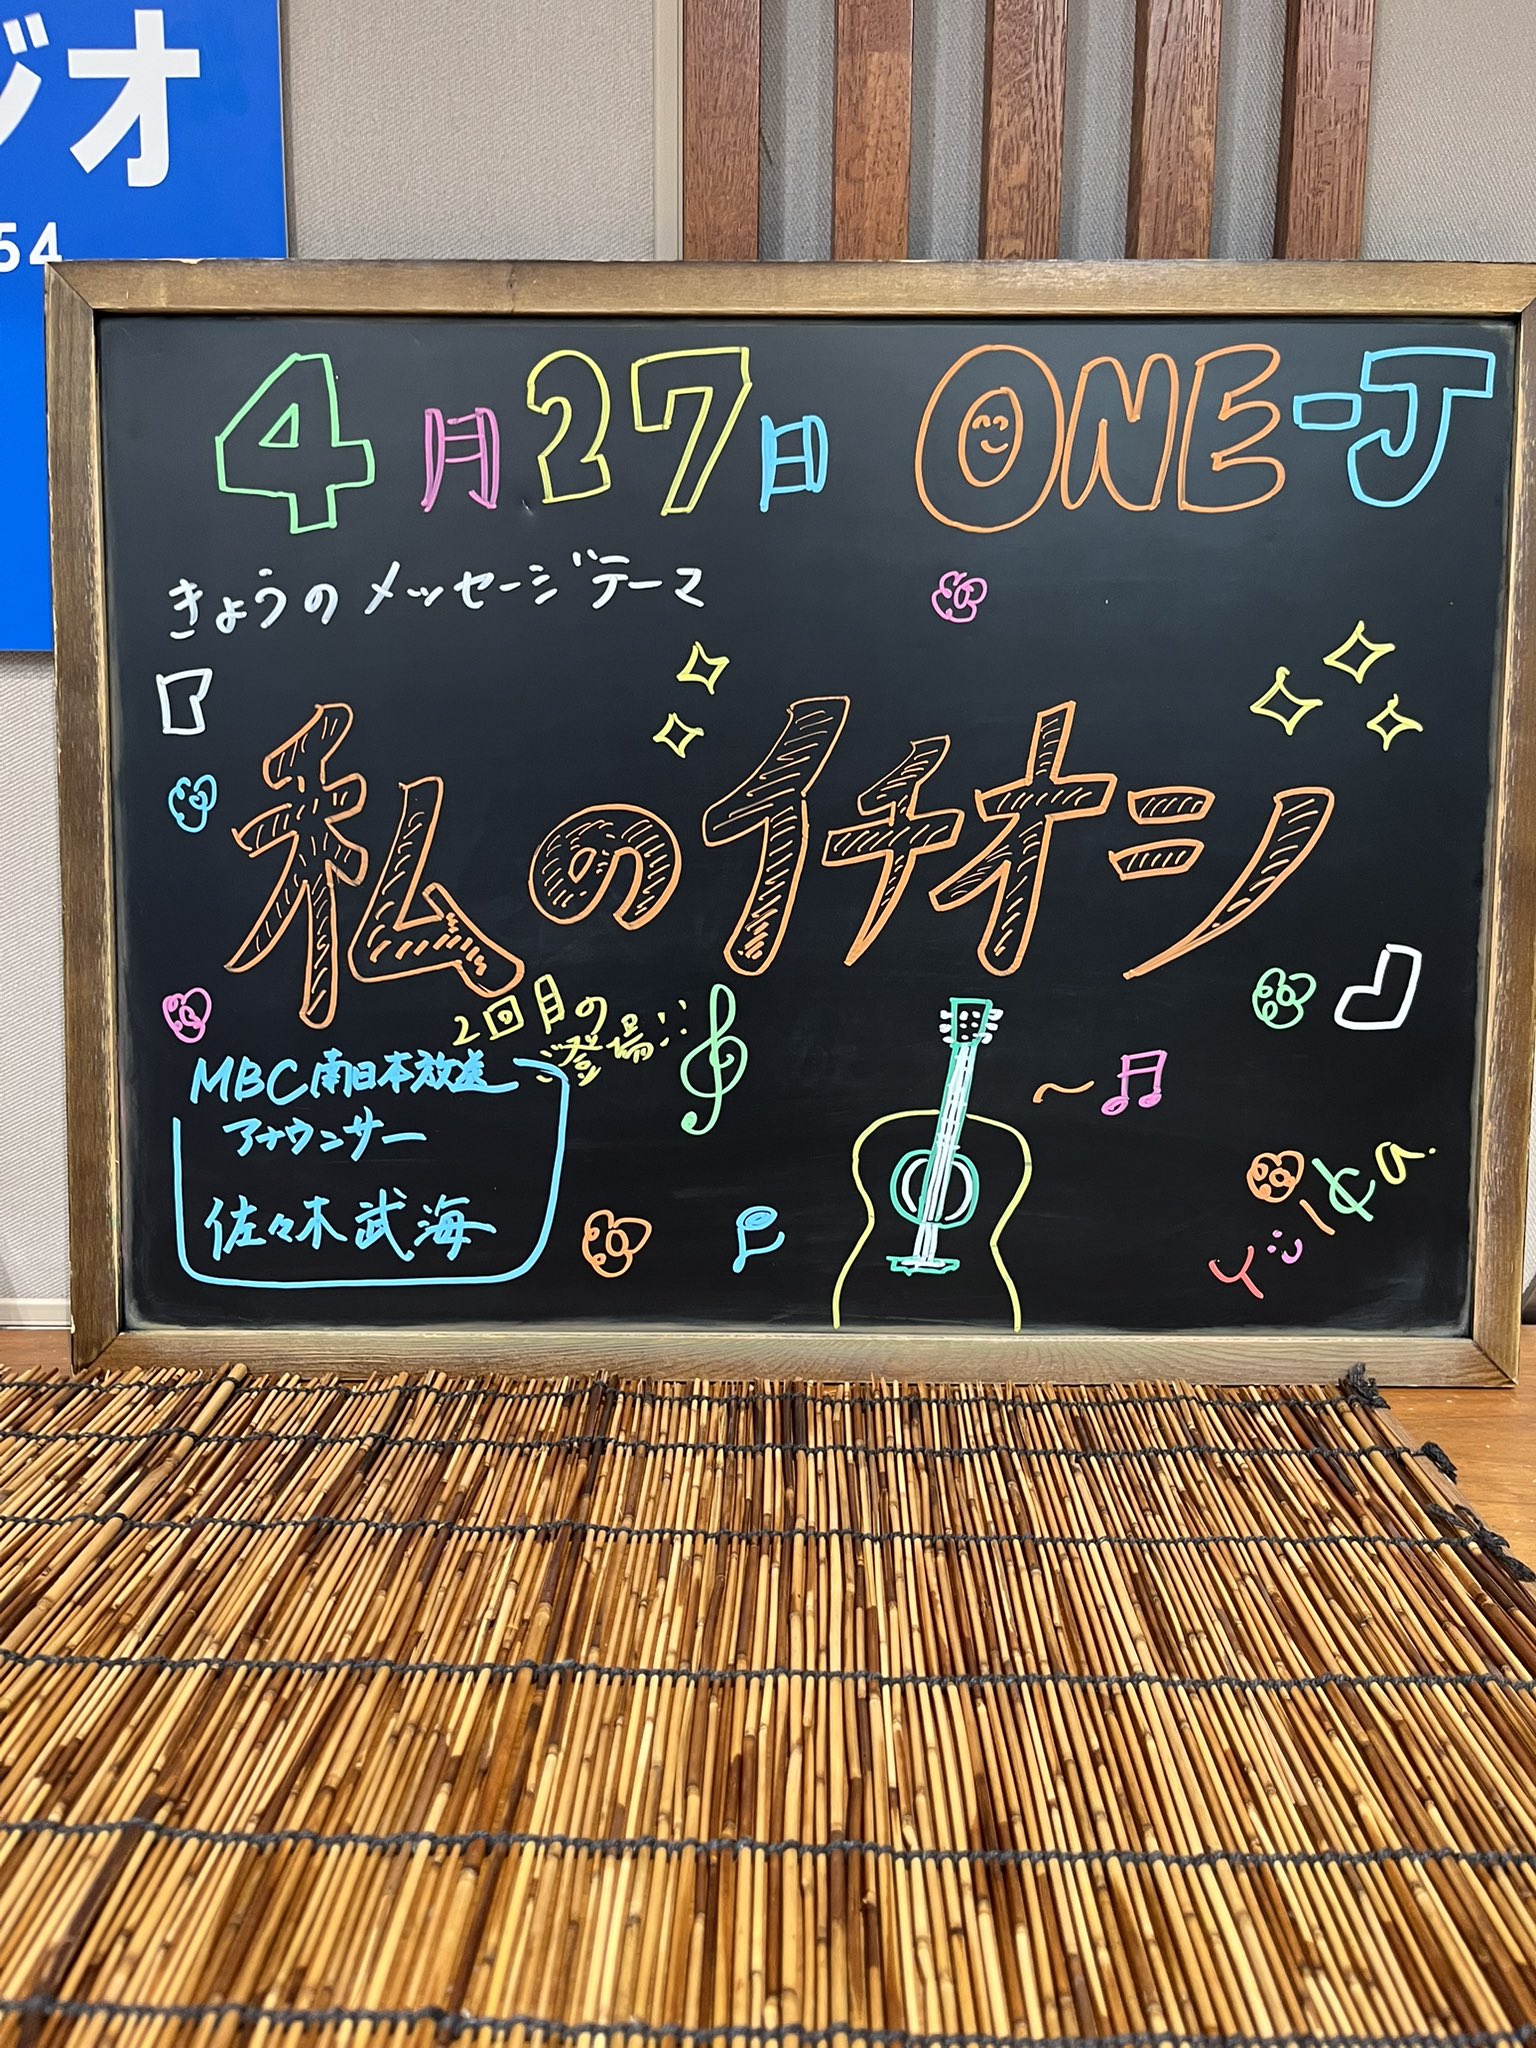 ジオ
54
4月27日 ONE-J
きょうのメッセージテーマ
『私のイチオシ』
2回目の
ご登場!!
MBC南日本放送
アナウンサー
佐々木武海